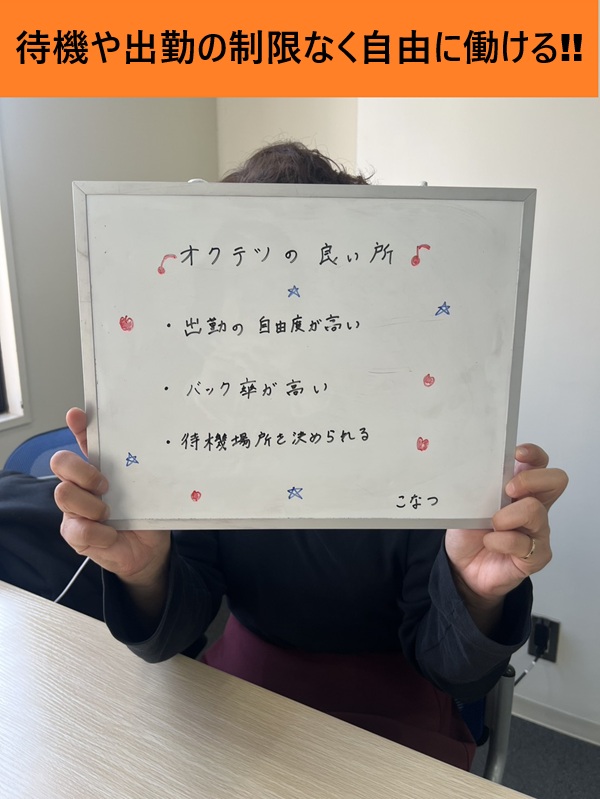 待機や出勤の制限なく自由に働ける!!
オクテツの良い所
・出勤の自由度が高い
・バック率が高い
・待機場所を決められる
こなつ